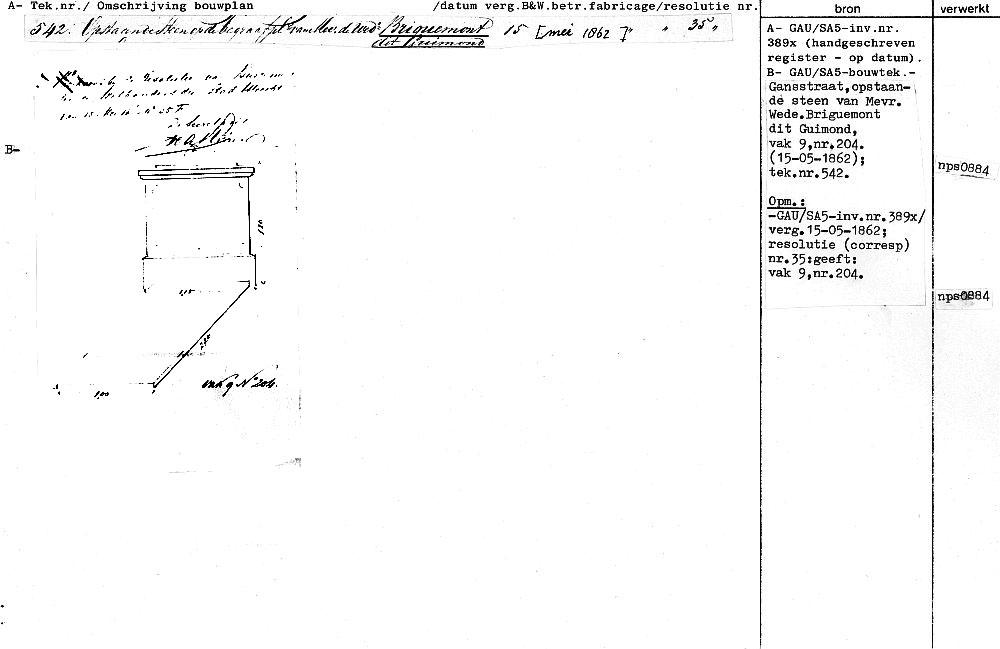 A- Tek.nr./ Omschrijving bouwplan /datum verg.B&W.betr.fabricage/resolutie nr.
bron
verwerkt
542. Opstaande steen van Mevr. de Wed: Briquemont 15 [mei 1862]" " 35"
dit Guimond
A- GAU/SA5-inv.nr.
389x (handgeschreven
register - op datum).
B- GAU/SA5-bouwtek.-
Gansstraat,opstaan-
de steen van Mevr.
Wede.Briguemont
dit Guimond,
vak 9,nr.204.
(15-05-1862);
tek.nr.542.
Opm.:
-GAU/SA5-inv.nr.389x/
verg.15-05-1862;
resolutie (corresp)
nr.35:geeft:
vak 9,nr.204.
nps0884
nps0884
bij de Resolutie van
Wethouders der Stad Utrecht
B-
vak 9 No 204.
1,00